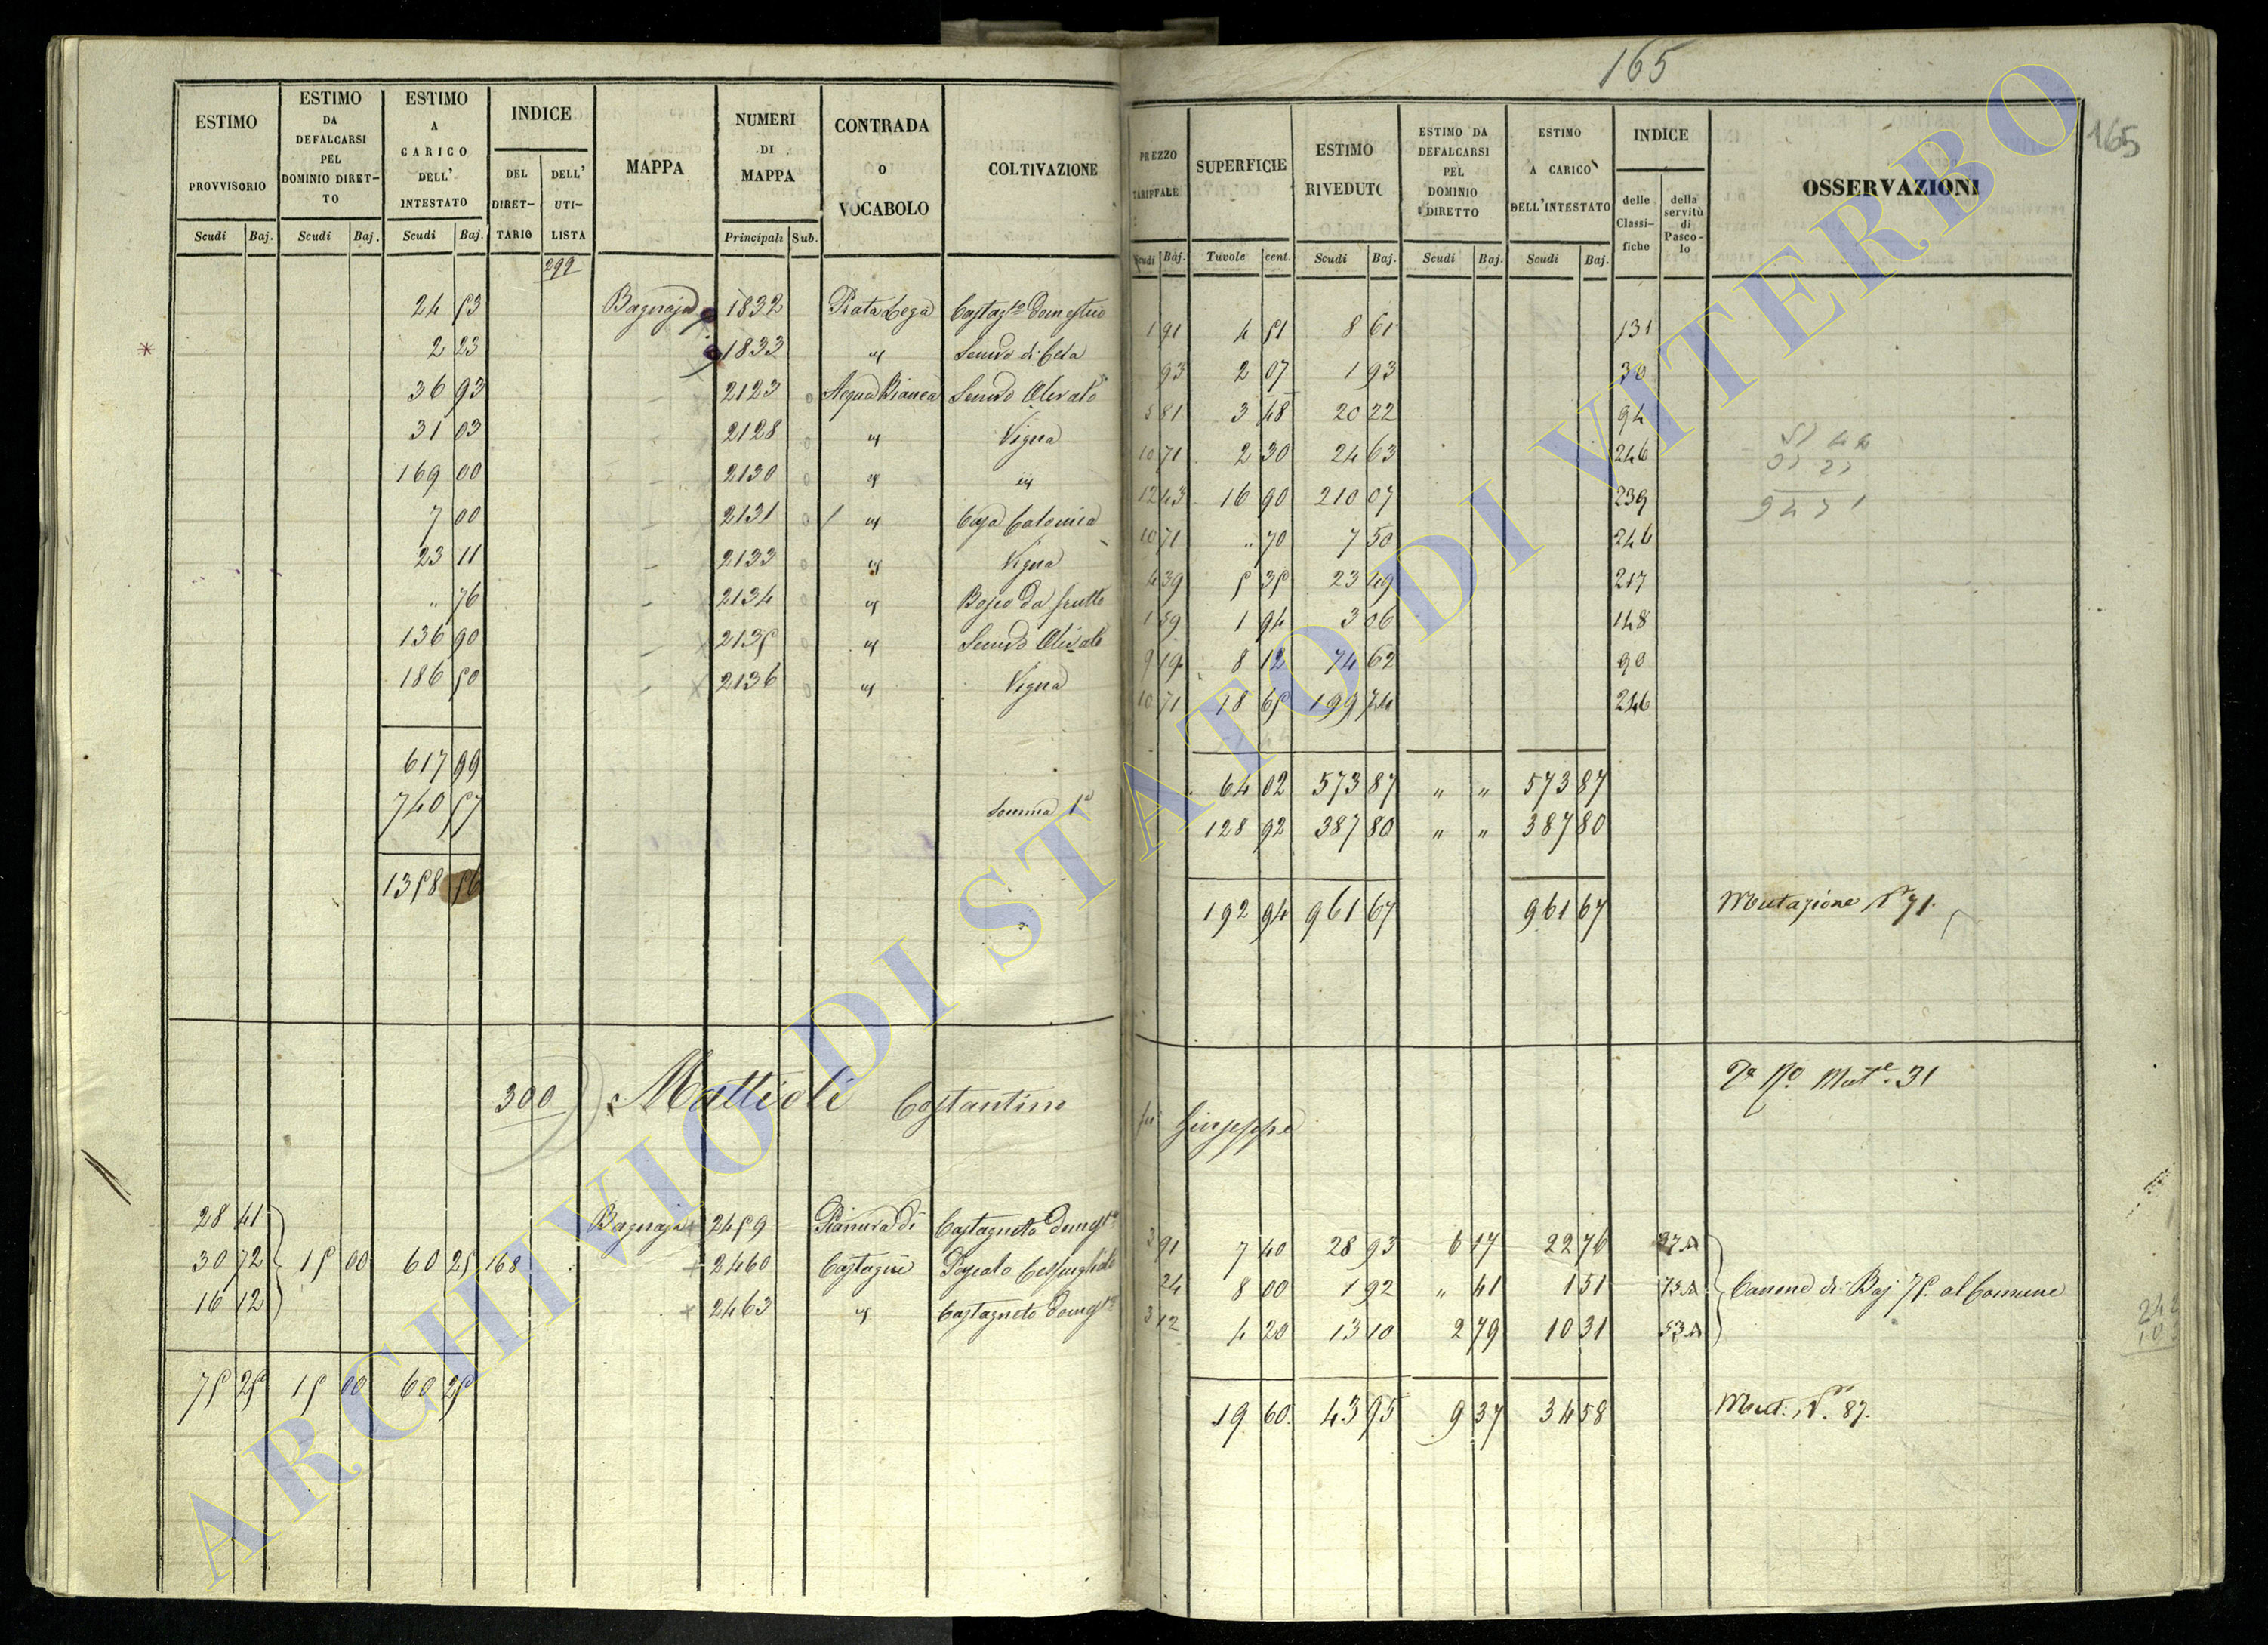 165
165
ESTIMO PROVVISORIO | ESTIMO DA DEFALCARSI PEL DOMINIO DIRET-TO | ESTIMO A CARICO DELL' INTESTATO | INDICE | MAPPA | NUMERI DI MAPPA | CONTRADA O VOCABOLO | COLTIVAZIONE
DEL DIRET-TARIO | DELL' UTI-LISTA
Scudi Baj. | Scudi Baj. | Scudi Baj. | Principali Sub.
299
24 53 Bagnaja 1832 Prata Lega Castag.to Domestico
2 23 1833 " Semivo di Ceta
36 93 2123 0 Acqua Bianca Semivo Olivato
31 03 2128 0 " Vigna
169 00 2130 0 " "
7 00 2131 0 " Casa Colonica
23 11 2133 0 " Vigna
" 76 2134 0 " Bosco da frutto
136 90 2135 0 " Semivo Olivato
186 50 2136 0 " Vigna
617 99
740 57 Somma 1a
1358 56
300 Mattioli Costantino
28 41 Bagnaja 2459 Pianura di Castagneto Domest.o
30 72 15 00 60 25 168 2460 Castagni Pascolo Cespugliato
16 12 2463 " Castagneto Domest.o
75 25 15 00 60 25
PREZZO TARIFFALE | SUPERFICIE | ESTIMO RIVEDUTO | ESTIMO DA DEFALCARSI PEL DOMINIO DIRETTO | ESTIMO A CARICO DELL'INTESTATO | INDICE | OSSERVAZIONI
delle Classi-fiche | della servitù di Pasco-lo
Scudi Baj. | Tavole cent. | Scudi Baj. | Scudi Baj. | Scudi Baj.
1 91 4 51 8 61 131
93 2 07 1 93 30
5 81 3 48 20 22 94
10 71 2 30 24 63 246
12 43 16 90 210 07 239
10 71 " 70 7 50 246
4 39 5 35 23 49 217
1 59 1 94 3 06 148
9 19 8 12 74 62 90
10 71 18 65 199 74 246
64 02 573 87 " " 573 87
128 92 387 80 " " 387 80
192 94 961 67 961 67 Mutazione N. 71.
Mut.e 31
fu Giuseppe
3 91 7 40 28 93 6 17 22 76 37
24 8 00 1 92 " 41 1 51 73 Canone di Baj 75. al Comune
3 12 4 20 13 10 2 79 10 31 53
19 60 43 95 9 37 34 58 Mut: N. 87.
ARCHIVIO DI STATO DI VITERBO